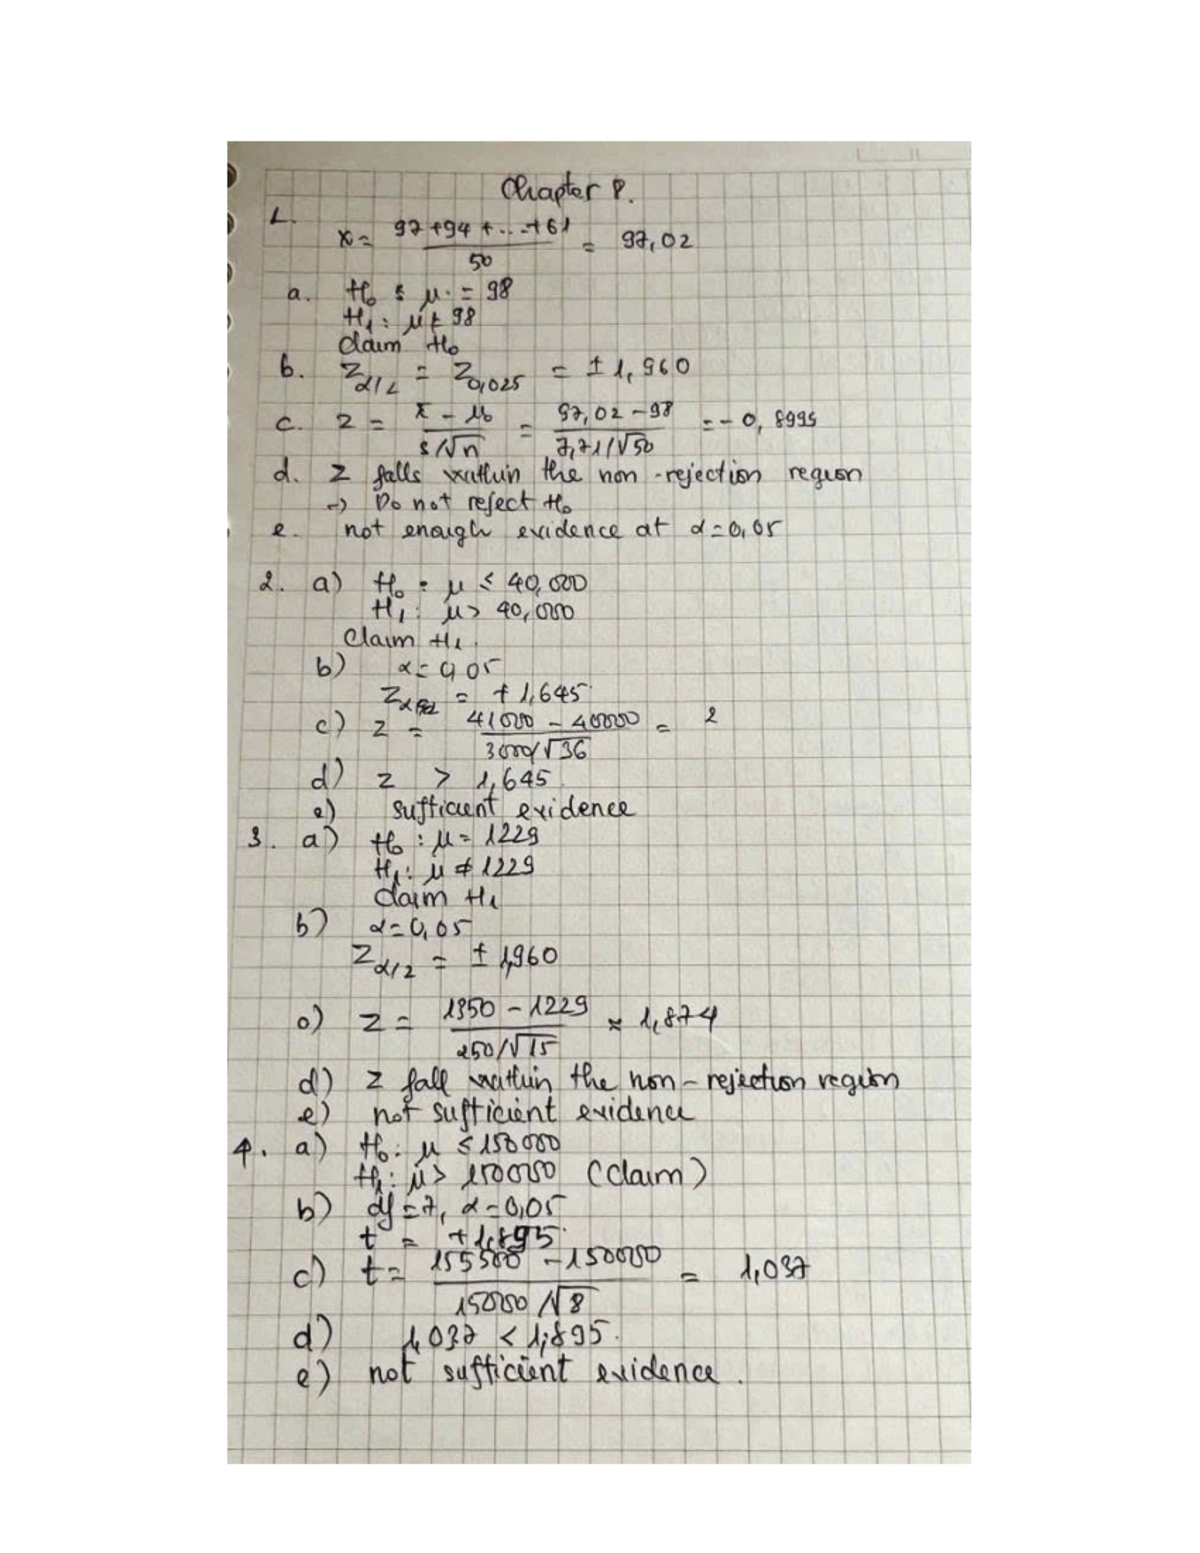 Chapter 8.
1.
x = 97 + 94 + ... + 61 / 50 = 97,02
a. H₀ : μ = 98
H₁ : μ ≠ 98
Claim H₀
b. Z α/2 = Z 0,025 = ± 1,960
c. Z = x̄ - μ₀ / s/√n = 97,02 - 98 / 7,71/√50 = - 0,8995
d. Z falls within the non-rejection region
→ Do not reject H₀
e. not enough evidence at α = 0,05
2. a) H₀ : μ ≤ 40,000
H₁ : μ > 40,000
Claim H₁.
b) α = 0,05
Z = + 1,645
c) Z = 41000 - 40000 / 3000/√36 = 2
d) Z > 1,645
e) sufficient evidence
3. a) H₀ : μ = 1229
H₁ : μ ≠ 1229
Claim H₁
b) α = 0,05
Z α/2 = ± 1,960
c) Z = 1350 - 1229 / 250/√15 ≈ 1,874
d) Z fall within the non-rejection region
e) not sufficient evidence
4. a) H₀ : μ ≤ 150000
H₁ : μ > 150000 (Claim)
b) df = 7, α = 0,05
t = + 1,895
c) t = 155500 - 150000 / 15000/√8 = 1,037
d) 1,037 < 1,895.
e) not sufficient evidence.